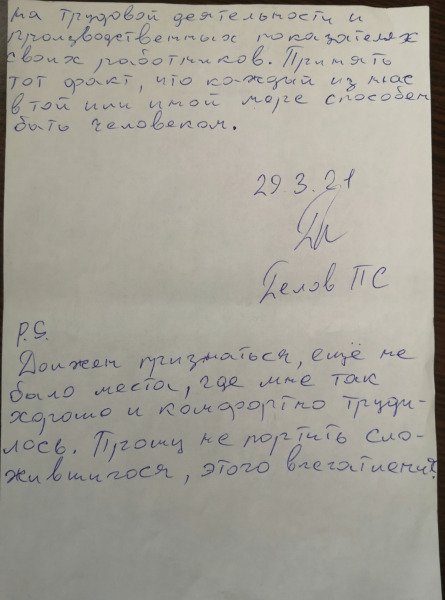 на трудовой деятельности и
производственных показателях
своих работников. Принять
тот факт, что каждый из нас
в той или иной мере способен
быть человеком.
29 3. 21
Белов ПС
P.S.
Должен признаться, ещё не
было места, где мне так
хорошо и комфортно труди-
лось. Прошу не портить сло-
жившигося, этого впечатления.